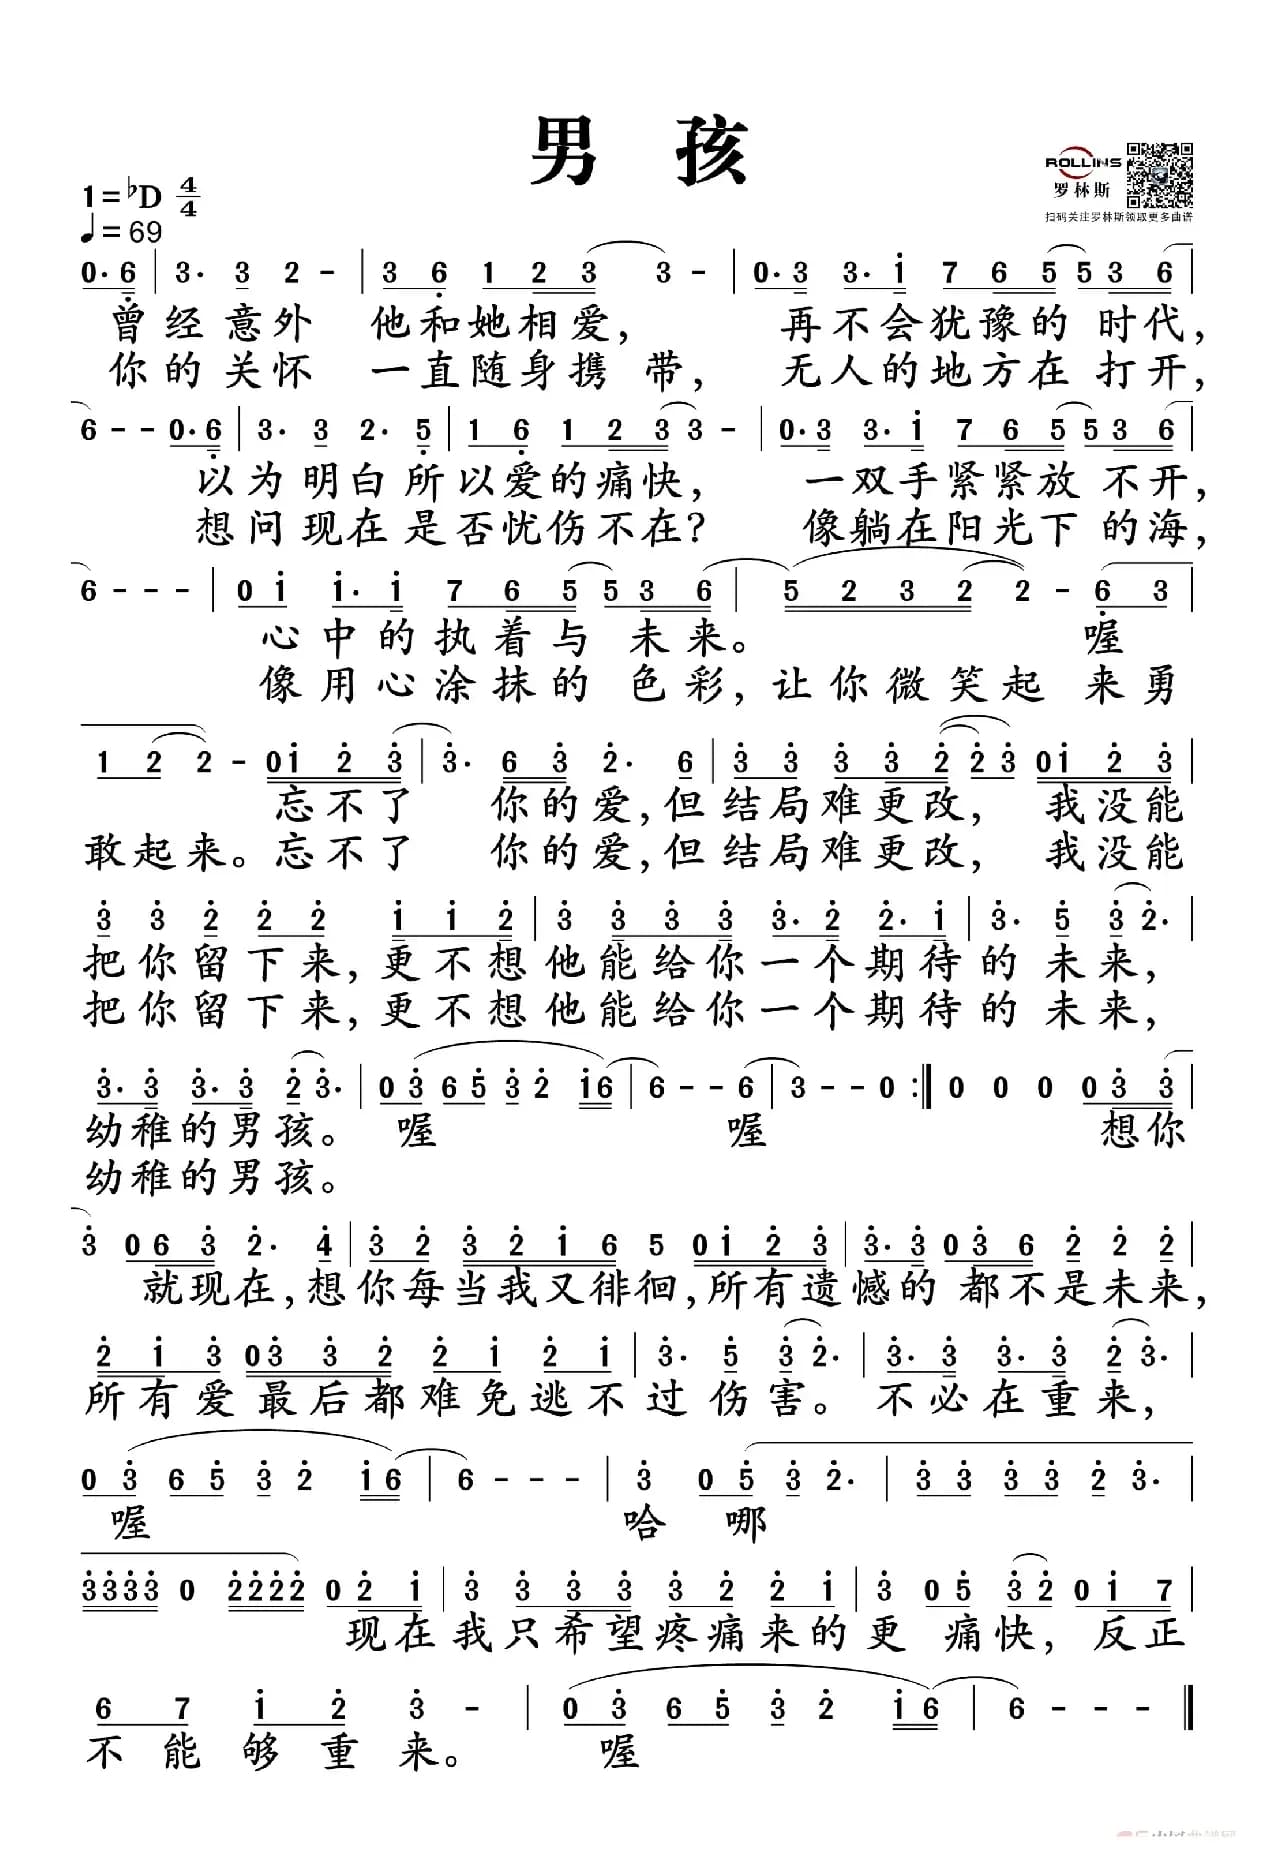 男 孩
ROLLINS
罗林斯
扫码关注罗林斯领取更多曲谱
1=♭D 4/4
♩=69
0·6 | 3· 3 2 - | 3 6 1 2 3 3 - | 0·3 3·i 7 6 5 5 3 6 |
曾经意外 他和她相爱, 再不会犹豫的 时代,
你的关怀 一直随身携 带, 无人的地方在 打开,
6 - - 0·6 | 3· 3 2· 5 | 1 6 1 2 3 3 - | 0·3 3·i 7 6 5 5 3 6 |
以为明白所以爱的痛快, 一双手紧紧放 不开,
想问现在是否忧伤不在? 像躺在阳光下 的海,
6 - - - | 0 i i·i 7 6 5 5 3 6 | 5 2 3 2 2 - 6 3 |
心中的执着与 未来。 喔
像用心涂抹的 色彩,让你微笑起 来勇
1 2 2 - 0 i 2 3 | 3· 6 3 2· 6 | 3 3 3 3 2 2 3 0 i 2 3 |
忘不了 你的爱,但结局难更改, 我没能
敢起来。忘不了 你的爱,但结局难更改, 我没能
3 3 2 2 2 i i 2 | 3 3 3 3 3·2 2·i | 3· 5 3 2· |
把你留下来,更不想他能给你一个期待的 未来,
把你留下来,更不想他能给你一个期待的 未来,
3·3 3·3 2 3· | 0 3 6 5 3 2 i 6 | 6 - - 6 | 3 - - 0 :| 0 0 0 0 3 3 |
幼稚的男孩。 喔 喔 想你
幼稚的男孩。
3 0 6 3 2· 4 | 3 2 3 2 i 6 5 0 i 2 3 | 3·3 0 3 6 2 2 2 |
就现在,想你每当我又徘徊,所有遗憾的 都不是未来,
2 i 3 0 3 3 2 2 i 2 i | 3· 5 3 2· | 3·3 3·3 2 3· |
所有爱最后都难免逃不过伤害。不必在重来,
0 3 6 5 3 2 i 6 | 6 - - - | 3 0 5 3 2· | 3 3 3 3 2 3· |
喔 哈 哪
3333 0 2222 0 2 i | 3 3 3 3 3 2 2 i | 3 0 5 3 2 0 i 7 |
现在我只希望疼痛来的更 痛快, 反正
6 7 i 2 3 - | 0 3 6 5 3 2 i 6 | 6 - - - ‖
不能够重来。 喔